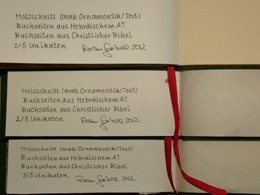 Holzschnitt (arab. Ornamentik/Text)
Buchseiten aus Hebräischem AT
Buchseiten aus Christlicher Bibel
1/5 Unikaten. 2012
Holzschnitt (arab. Ornamentik/Text)
Buchseiten aus Hebräischem AT
Buchseiten aus Christlicher Bibel
2/5 Unikaten. 2012
Holzschnitt (arab. Ornamentik/Text)
Buchseiten aus Hebräischem AT
Buchseiten aus Christlicher Bibel
3/5 Unikaten 2012